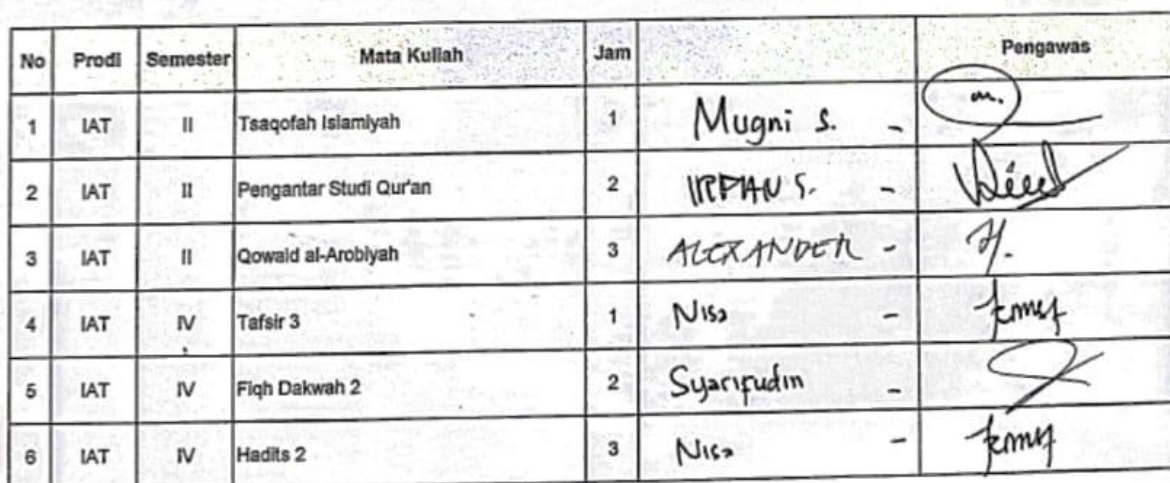 No Prodi Semester Mata Kuliah Jam Pengawas
1 IAT II Tsaqofah Islamiyah 1 Mugni S. -
2 IAT II Pengantar Studi Qur'an 2 IRPAN S. -
3 IAT II Qowaid al-Arobiyah 3 ALEXANDER -
4 IAT IV Tafsir 3 1 Nisa -
5 IAT IV Fiqh Dakwah 2 2 Syarifudin -
6 IAT IV Hadits 2 3 Nisa -